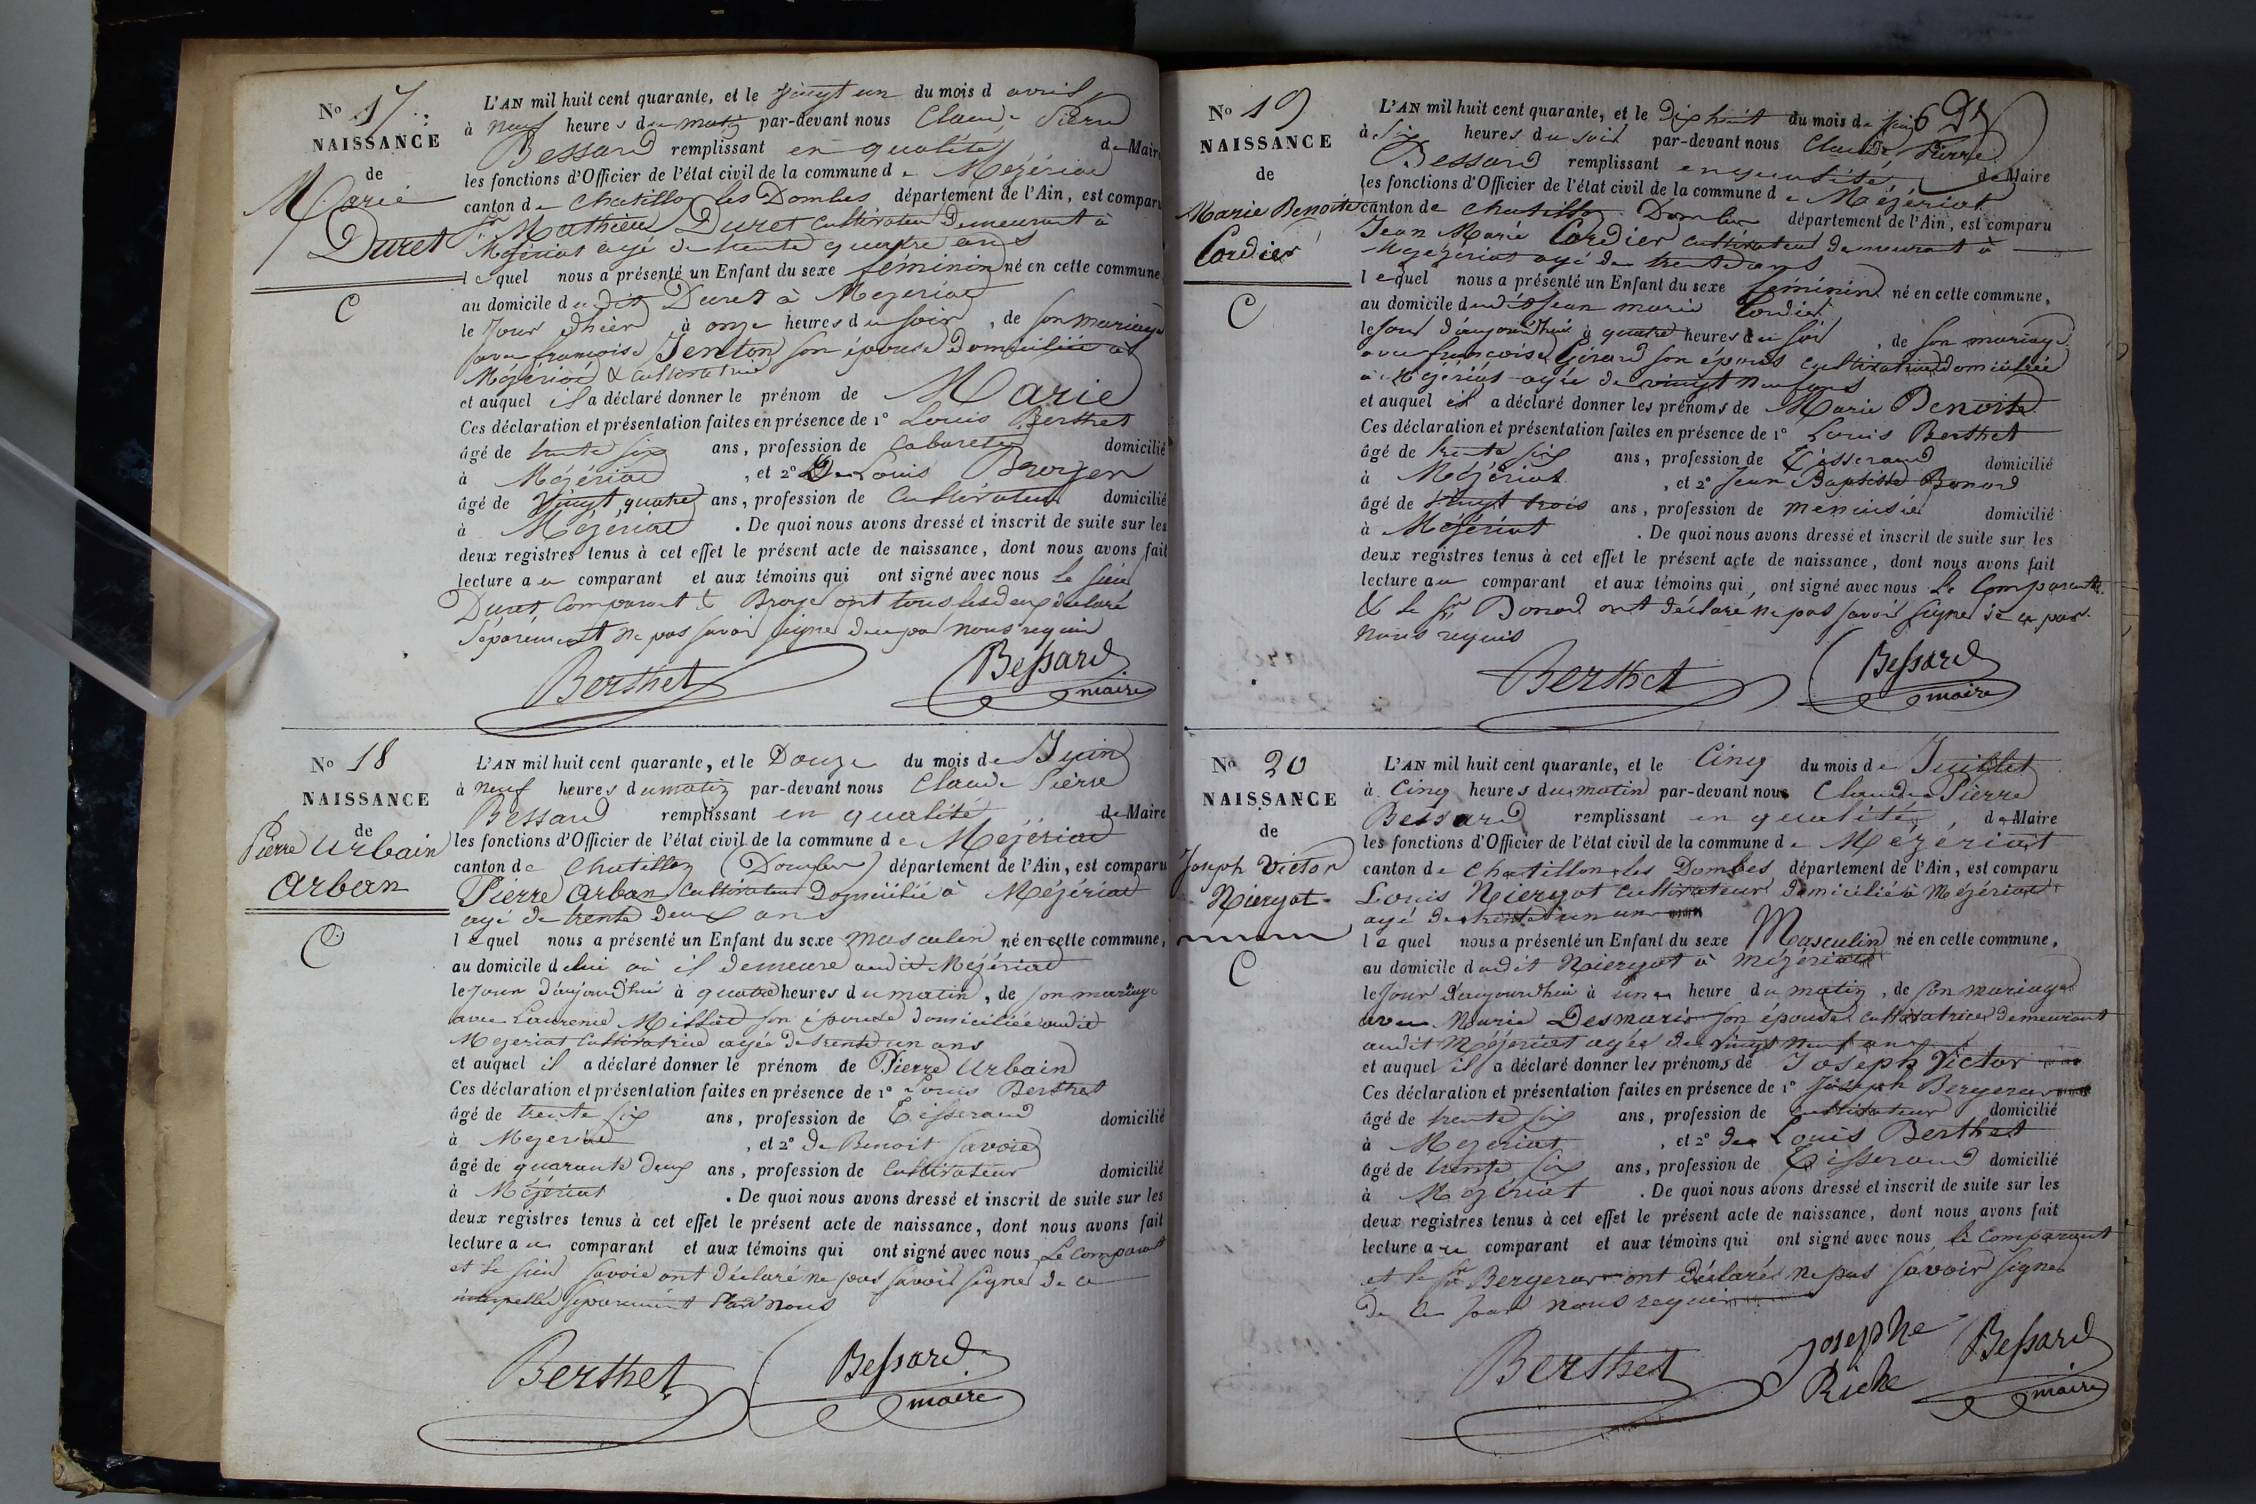 No 17
NAISSANCE
de
Marie
Duret
C
L'AN mil huit cent quarante, et le vingt un du mois d avril
à neuf heures du matin par-devant nous Claude Pierre
Bessard remplissant en qualité de Maire
les fonctions d'Officier de l'état civil de la commune de Mézériat
canton de Chatillon les Dombes, département de l'Ain, est comparu
Sr Mathieu Duret cultivateur demeurant à
Mézériat agé de trente quatre ans
lequel nous a présenté un Enfant du sexe féminin né en cette commune
au domicile dudit Duret à Mezeriat
le jour d'hier à onze heures du soir, de son mariage
avec françoise son épouse domiciliée à
Mézériat & cultivatrice
et auquel il a déclaré donner le prénom de Marie
Ces déclaration et présentation faites en présence de 1º Louis Berthet
âgé de trente six ans, profession de cabaretier domicilié
à Mézériat, et 2º De Louis Broyer
âgé de vingt quatre ans, profession de Cultivateur domicilié
à Mézériat. De quoi nous avons dressé et inscrit de suite sur les
deux registres tenus à cet effet le présent acte de naissance, dont nous avons fait
lecture au comparant et aux témoins qui ont signé avec nous le sieur
Duret Comparant & Broyer ont tous les deux déclaré
séparément ne pas savoir signer de ce par nous requis
Berthet Bessard
maire
No 18
NAISSANCE
de
Pierre Urbain
Arban
C
L'AN mil huit cent quarante, et le Douze du mois de Juin
à neuf heures du matin par-devant nous Claude Pierre
Bessard remplissant en qualité de Maire
les fonctions d'Officier de l'état civil de la commune de Mézériat
canton de Chatillon (Dombes) département de l'Ain, est comparu
Pierre Arban Cultivateur Domicilié à Mézériat
agé de trente deux ans
lequel nous a présenté un Enfant du sexe masculin né en cette commune,
au domicile de lui où il demeure audit Mézériat
le jour d'aujourd'hui à quatre heures du matin, de son mariage
avec Laurence son épouse domiciliée audit
Mezeriat Cultivatrice agée de trente un ans
et auquel il a déclaré donner le prénom de Pierre Urbain
Ces déclaration et présentation faites en présence de 1º Louis Berthet
âgé de trente six ans, profession de Tisserand domicilié
à Mezeriat, et 2º de Benoit Savoie
âgé de quarante deux ans, profession de Cultivateur domicilié
à Mézériat. De quoi nous avons dressé et inscrit de suite sur les
deux registres tenus à cet effet le présent acte de naissance, dont nous avons fait
lecture au comparant et aux témoins qui ont signé avec nous Le Comparant
et le sieur Savoie ont déclaré ne pas savoir signer de ce
interpellés séparément par nous
Berthet Bessard
maire
No 19
NAISSANCE
de
Marie Benoite
Cordier
C
L'AN mil huit cent quarante, et le Dix huit du mois de juin
à Six heures du soir par-devant nous Claude Pierre
Bessard remplissant en qualité de Maire
les fonctions d'Officier de l'état civil de la commune de Mézériat
canton de Chatillon Dombes département de l'Ain, est comparu
Jean Marie Cordier cultivateur demeurant à
Mezeriat agé de trente ans
lequel nous a présenté un Enfant du sexe féminin né en cette commune,
au domicile dudit Jean marie Cordier
le jour d'aujourd'hui à quatre heures du soir, de son mariage
avec françoise Gérard son épouse cultivatrice domiciliée
à Mézériat agée de vingt neuf ans
et auquel il a déclaré donner les prénoms de Marie Benoite
Ces déclaration et présentation faites en présence de 1º Louis Berthet
âgé de trente six ans, profession de Tisserand domicilié
à Mézériat, et 2º Jean Baptiste Bonard
âgé de vingt trois ans, profession de menuisier domicilié
à Mézériat. De quoi nous avons dressé et inscrit de suite sur les
deux registres tenus à cet effet le présent acte de naissance, dont nous avons fait
lecture au comparant et aux témoins qui, ont signé avec nous Le Comparant
& le Sr Bonard ont déclaré ne pas savoir signer de ce par
nous requis
Berthet Bessard
maire
No 20
NAISSANCE
de
Joseph Victor
Niergot
C
L'AN mil huit cent quarante, et le Cinq du mois de Juillet
à Cinq heures du matin par-devant nous Claude Pierre
Bessard remplissant en qualité, de Maire
les fonctions d'Officier de l'état civil de la commune de Mézériat
canton de Chatillon les Dombes département de l'Ain, est comparu
Louis Niergot Cultivateur domicilié à Mézériat
agé de trente un ans
lequel nous a présenté un Enfant du sexe Masculin né en cette commune,
au domicile dudit Niergot à Mézériat
le jour d'aujourd'hui à une heure du matin, de son mariage
avec Marie Desmaris son épouse cultivatrice demeurant
audit Mézériat agée de vingt neuf ans
et auquel il a déclaré donner les prénoms de Joseph Victor
Ces déclaration et présentation faites en présence de 1º Joseph Bergeron
âgé de trente six ans, profession de cultivateur domicilié
à Mezeriat, et 2º de Louis Berthet
âgé de trente six ans, profession de Tisserand domicilié
à Mézériat. De quoi nous avons dressé et inscrit de suite sur les
deux registres tenus à cet effet le présent acte de naissance, dont nous avons fait
lecture au comparant et aux témoins qui ont signé avec nous le Comparant
et le Sr Bergeron ont déclaré ne pas savoir signer
de ce par nous requis
Berthet Josephe Bessard
Riche maire